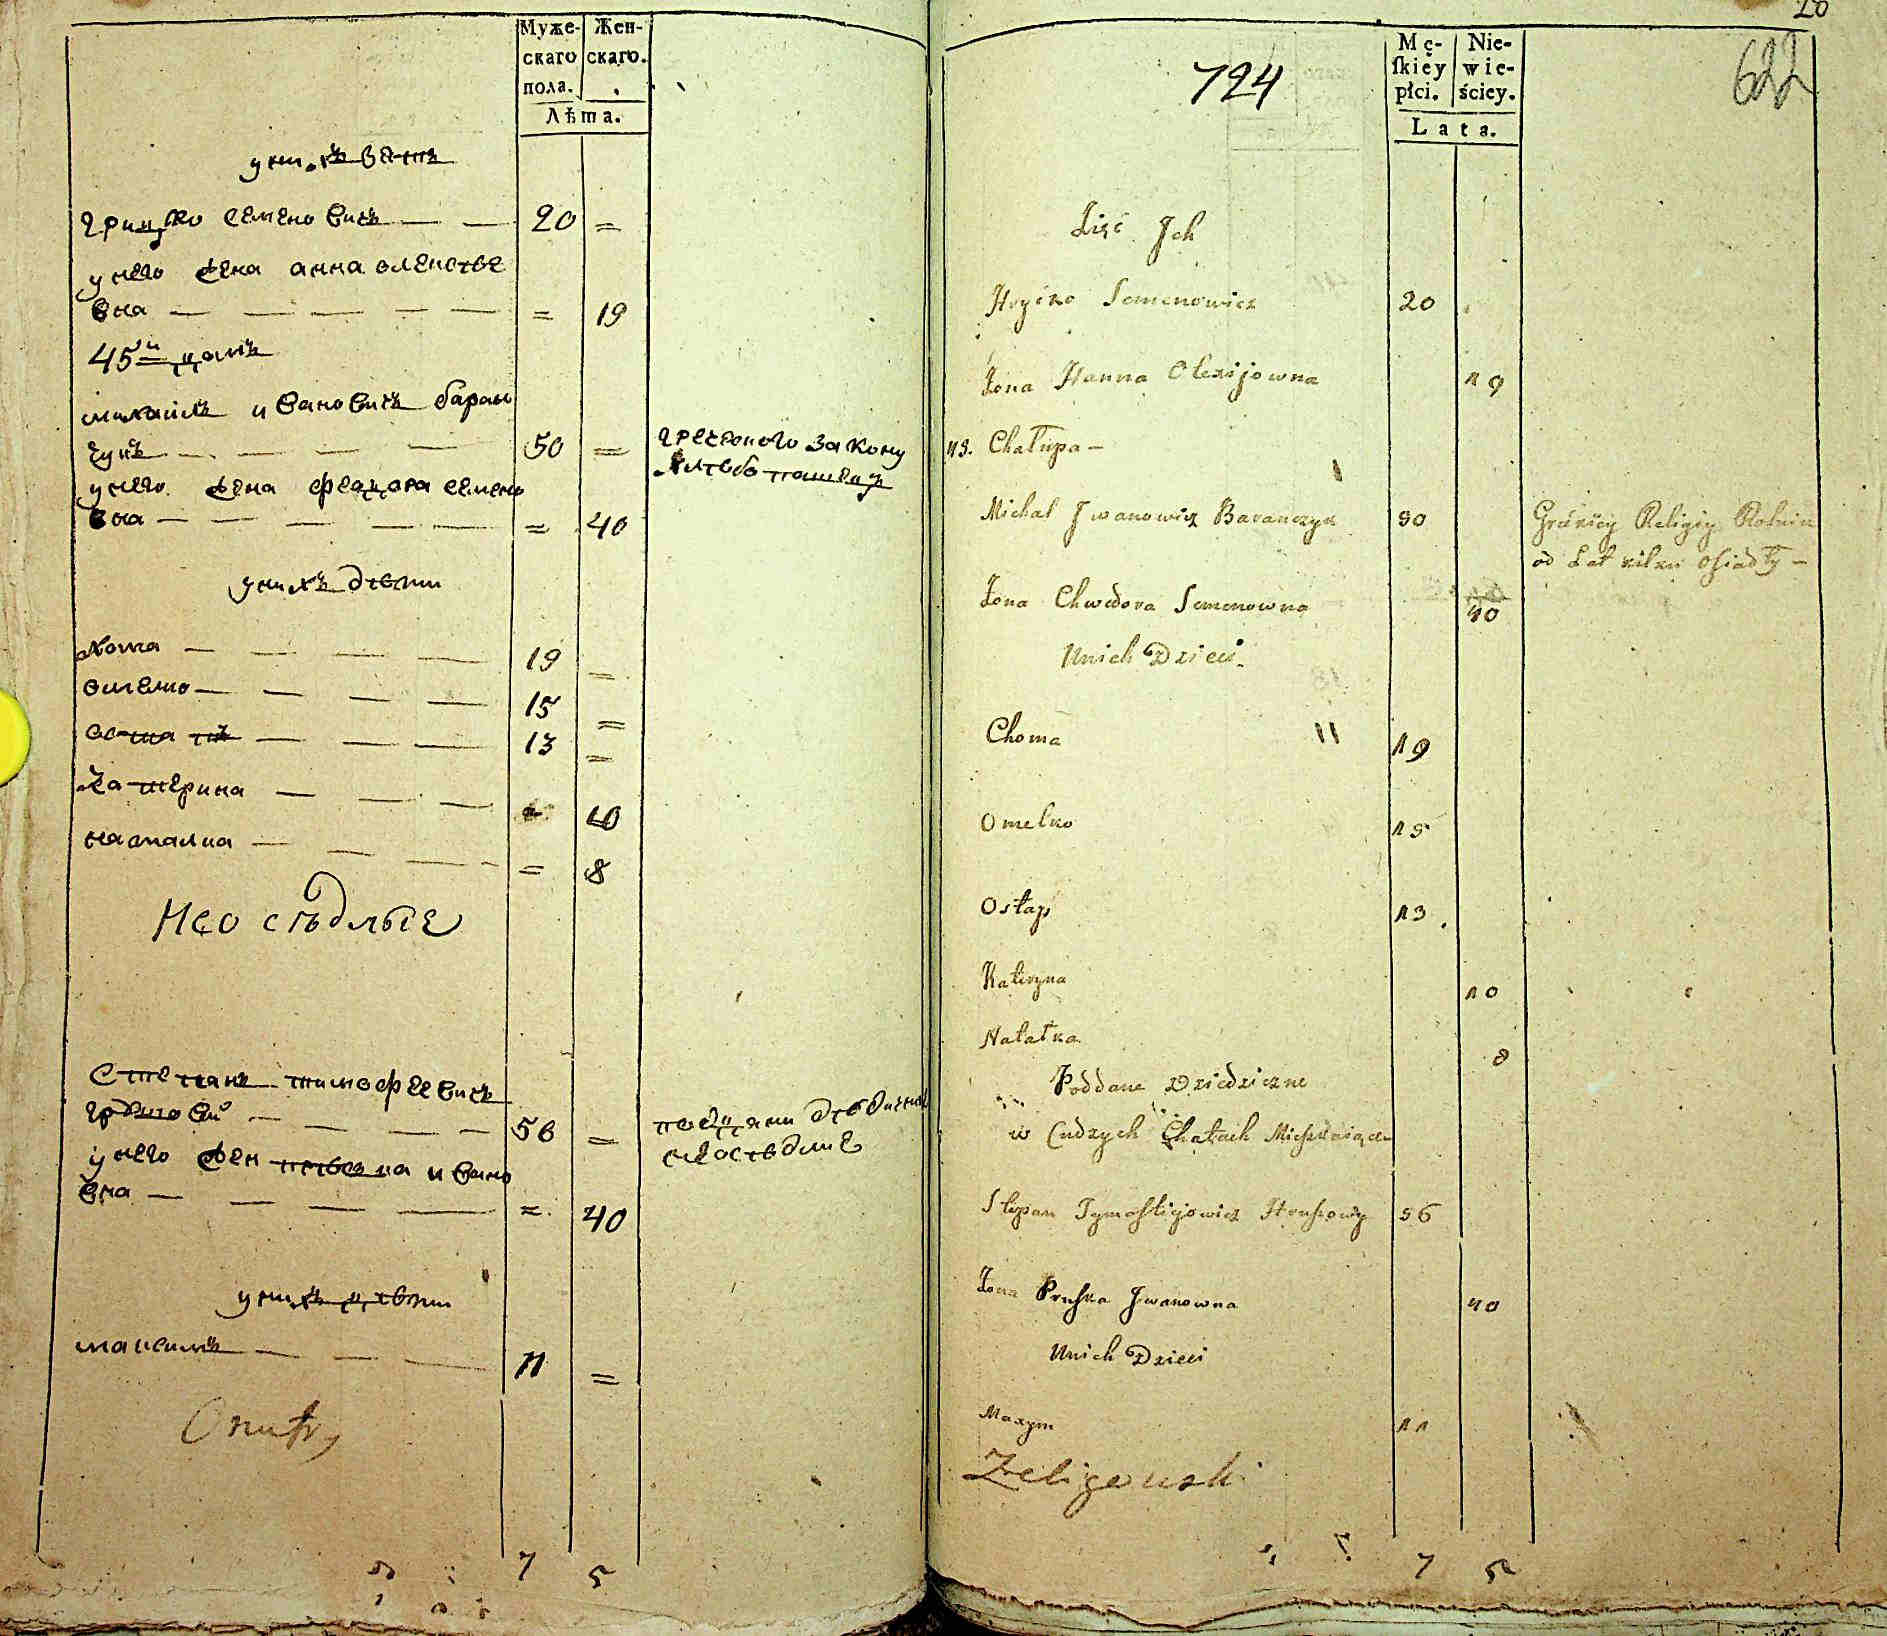 Муже-
скаго
пола.
Жен-
скаго.
Лѣта.
у нихъ зять
грицко семеновичъ 20 =
у него жена анна олексѣе
вна = 19
45й домъ
михайлъ ивановичъ баран
чукъ 50 =
греческого закону
хлѣбопашецъ
у него жена федора семено
вна = 40
у нихъ дѣти
хома 19 =
омелко 15 =
остапъ 13 =
катерина 10
наталка = 8
Неосѣдлые
Степанъ тимофеевичъ
56 =
у него жен ивано
вна = 40
у нихъ дѣти
максимъ 11 =
7 5
28
724
622
Mę-
ſkiey
płci.
Nie-
wie-
ściey.
Lata.
Zięć Jch
Hryćko Semenowicz 20
Żona Hanna Olexijowna 19
45. Chałupa –
Michał Jwanowicz Baranczyk 50
Gręckiey Religiy Rolnik
od Lat kilku Osiadły –
Żona Chwedora Semenowna 40
Unich Dzieci
Choma 19
Omelko 15
Ostap 13
Kateryna 10
Natałka 8
Poddane Dziedziczne
w Cudzych Chatach
Stepan 56
Żona Pruska Jwanowna 40
Unich Dzieci
Maxym 11
Zeligowski
7 5